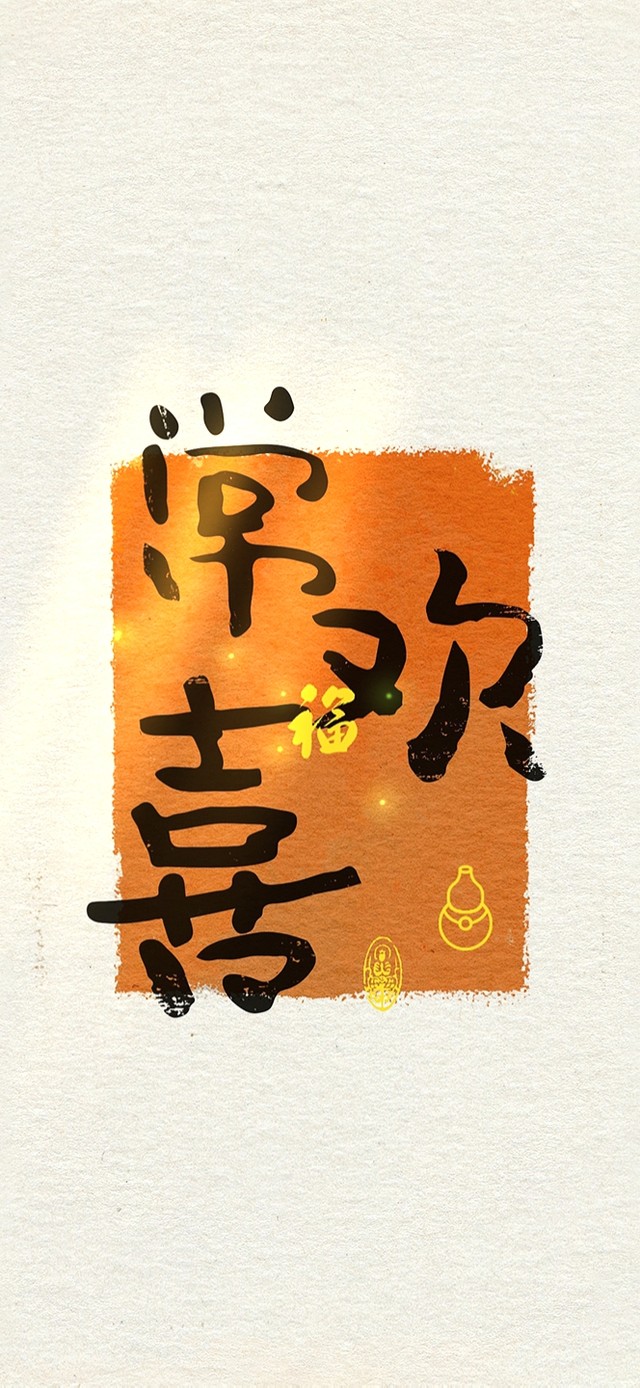 常
欢
喜
福